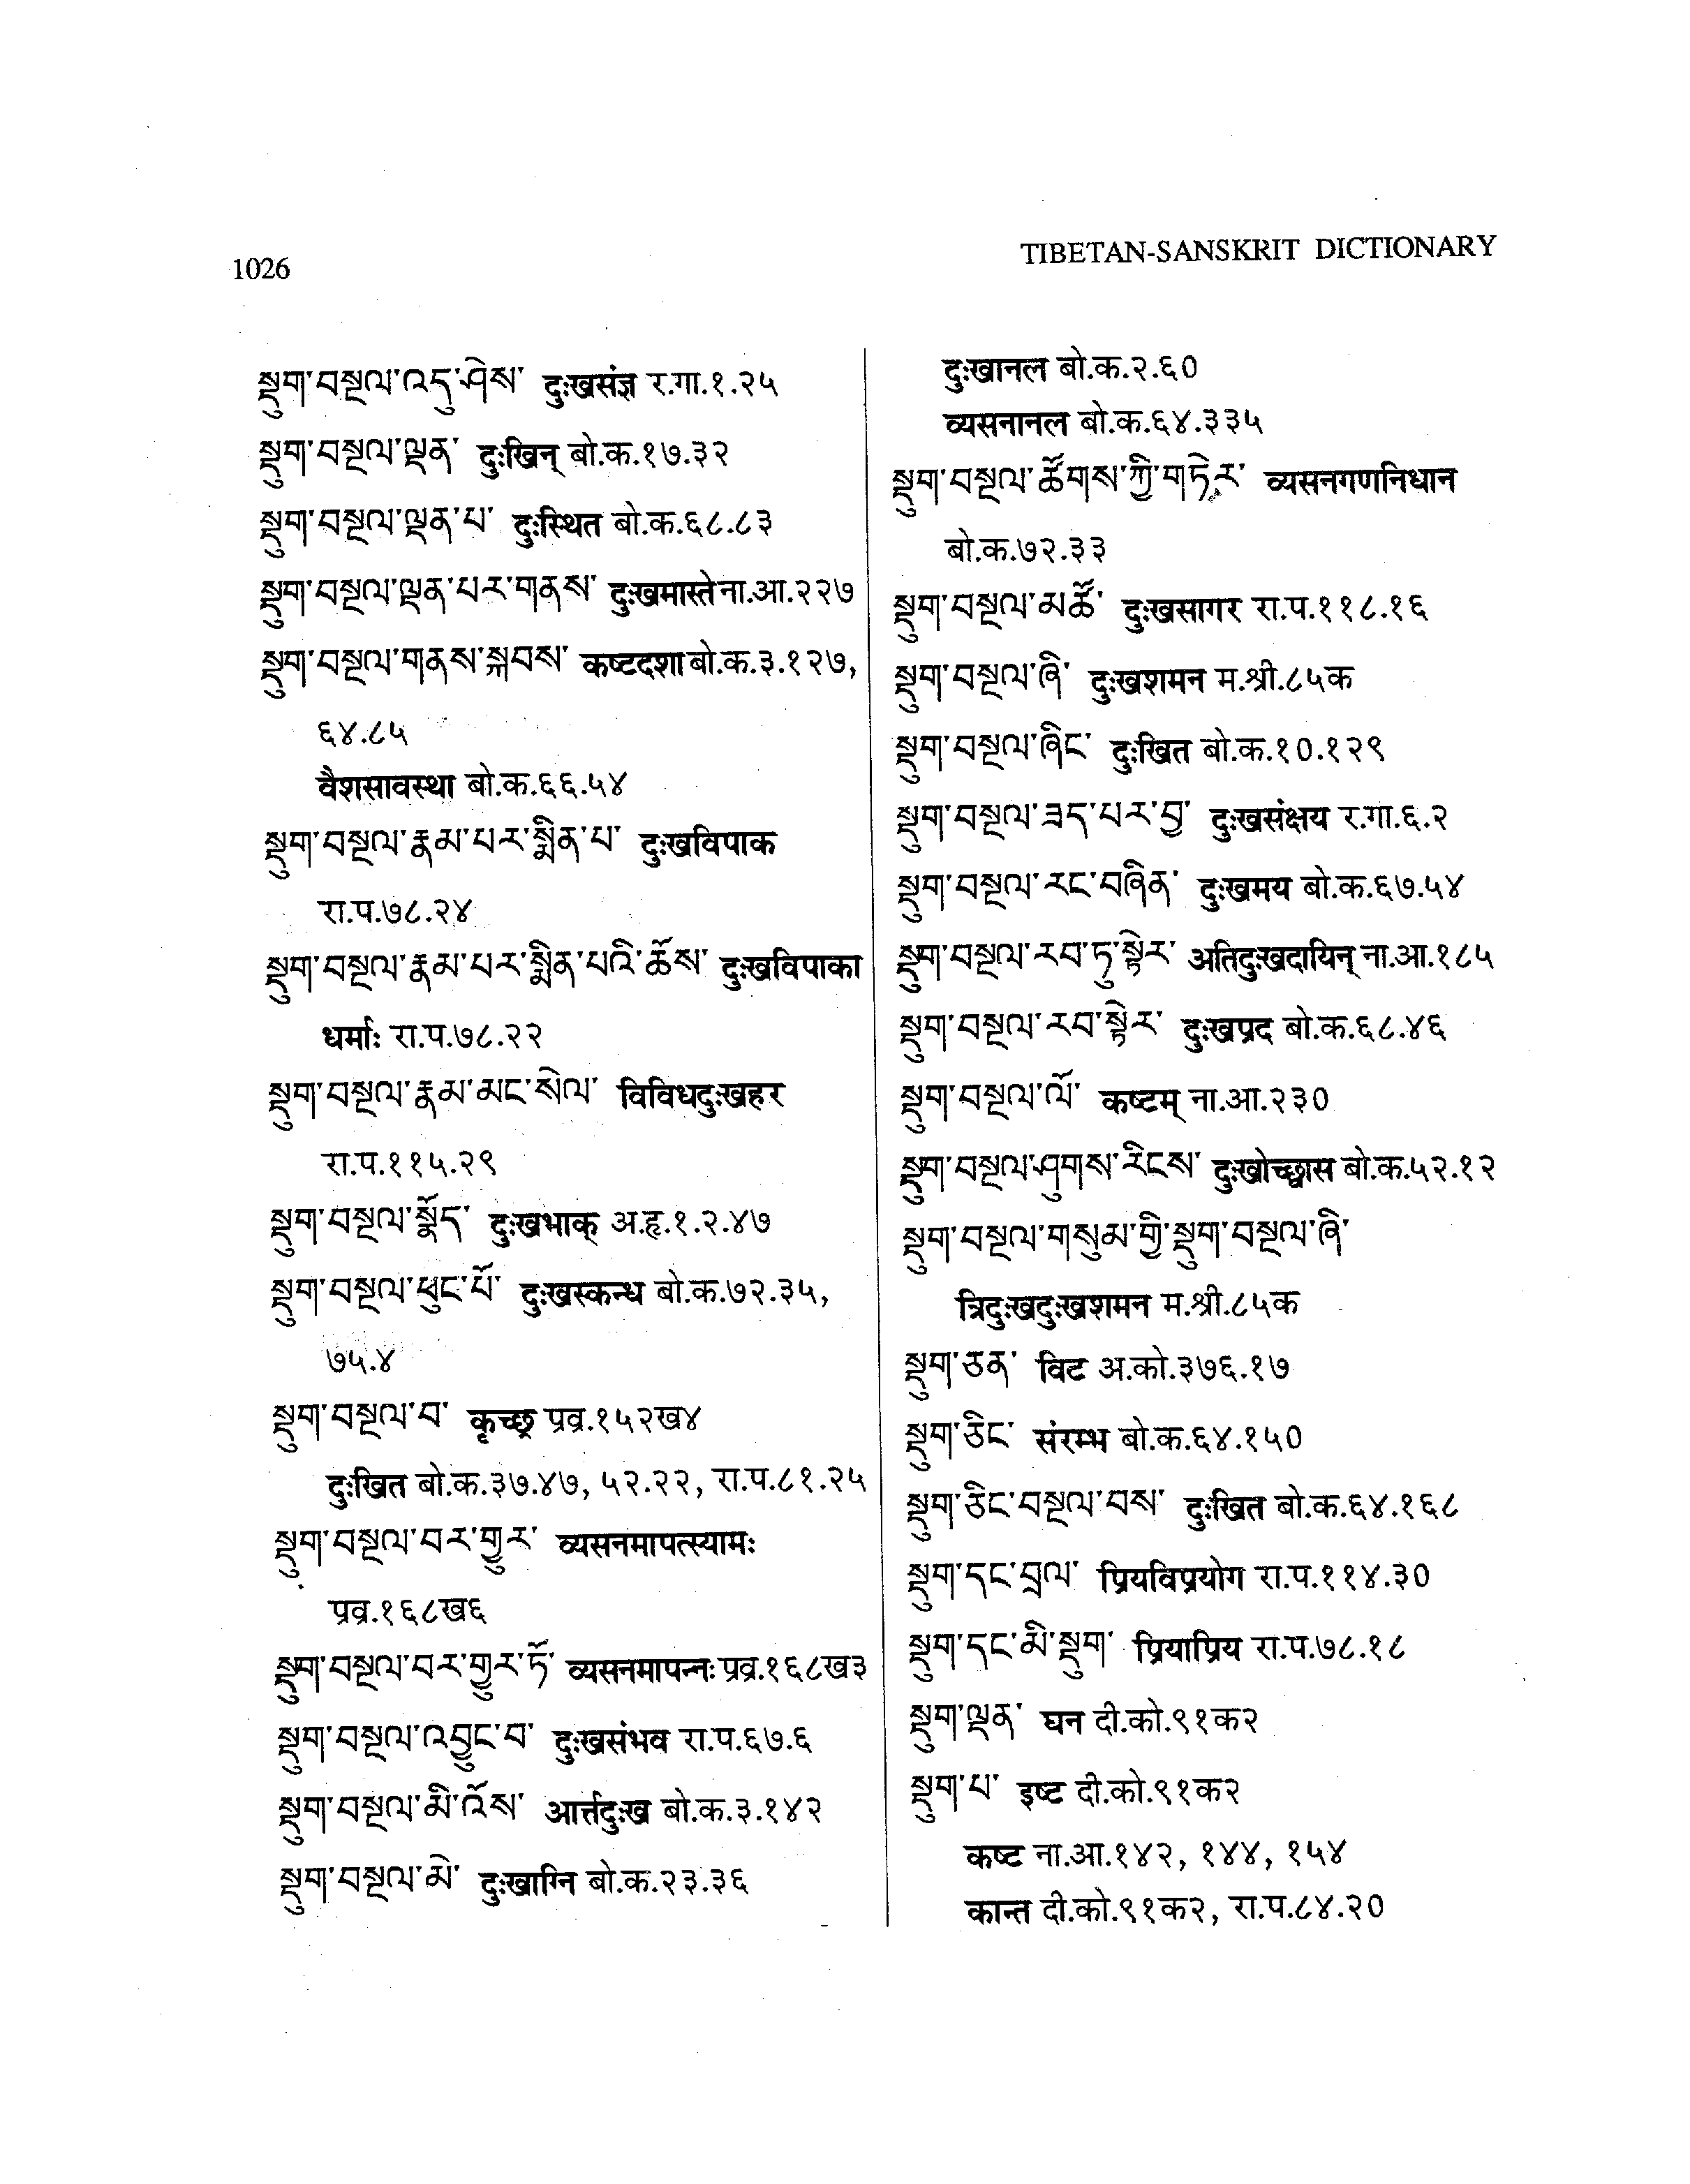 1026
TIBETAN-SANSKRIT DICTIONARY
སྡུག་བསྔལ་འདུ་ཤེས་ दुःखसंज्ञ र.गा.१.२५
སྡུག་བསྔལ་ལྡན་ दुःखिन् बो.क.१७.३२
སྡུག་བསྔལ་ལྡན་པ་ दुःस्थित बो.क.६८.८३
སྡུག་བསྔལ་ལྡན་པར་གནས་ दुःखमास्ते ना.आ.२२७
སྡུག་བསྔལ་གནས་སྐབས་ कष्टदशा बो.क.३.१२७,
६४.८५
वैशसावस्था बो.क.६६.५४
སྡུག་བསྔལ་རྣམ་པར་སྨིན་པ་ दुःखविपाक
रा.प.७८.२४
སྡུག་བསྔལ་རྣམ་པར་སྨིན་པའི་ཆོས་ दुःखविपाका
धर्माः रा.प.७८.२२
སྡུག་བསྔལ་རྣམ་མང་སེལ་ विविधदुःखहर
रा.प.११५.२९
སྡུག་བསྔལ་སྣོད་ दुःखभाक् अ.हृ.१.२.४७
སྡུག་བསྔལ་ཕུང་པོ་ दुःखस्कन्ध बो.क.७२.३५,
७५.४
སྡུག་བསྔལ་བ་ कृच्छ्र प्रव्र.१५२ख४
दुःखित बो.क.३७.४७, ५२.२२, रा.प.८१.२५
སྡུག་བསྔལ་བར་གྱུར་ व्यसनमापत्स्यामः
प्रव्र.१६८ख६
སྡུག་བསྔལ་བར་གྱུར་ཏོ་ व्यसनमापन्नः प्रव्र.१६८ख३
སྡུག་བསྔལ་འབྱུང་བ་ दुःखसंभव रा.प.६७.६
སྡུག་བསྔལ་མི་འོས་ आर्त्तदुःख बो.क.३.१४२
སྡུག་བསྔལ་མེ་ दुःखाग्नि बो.क.२३.३६
दुःखानल बो.क.२.६०
व्यसनानल बो.क.६४.३३५
སྡུག་བསྔལ་ཚོགས་ཀྱི་གཏེར་ व्यसनगणनिधान
बो.क.७२.३३
སྡུག་བསྔལ་མཚོ་ दुःखसागर रा.प.११८.१६
སྡུག་བསྔལ་ཞི་ दुःखशमन म.श्री.८५क
སྡུག་བསྔལ་ཞིང་ दुःखित बो.क.१०.१२९
སྡུག་བསྔལ་ཟད་པར་བྱ་ दुःखसंक्षय र.गा.६.२
སྡུག་བསྔལ་རང་བཞིན་ दुःखमय बो.क.६७.५४
སྡུག་བསྔལ་རབ་ཏུ་སྟེར་ अतिदुःखदायिन् ना.आ.१८५
སྡུག་བསྔལ་རབ་སྟེར་ दुःखप्रद बो.क.६८.४६
སྡུག་བསྔལ་ལོ་ कष्टम् ना.आ.२३०
སྡུག་བསྔལ་ཤུགས་རིངས་ दुःखोच्छ्वास बो.क.५२.१२
སྡུག་བསྔལ་གསུམ་གྱི་སྡུག་བསྔལ་ཞི་
त्रिदुःखदुःखशमन म.श्री.८५क
སྡུག་ཅན་ विट अ.को.३७६.१७
སྡུག་ཅིང་ संरम्भ बो.क.६४.१५०
སྡུག་ཅིང་བསྔལ་བས་ दुःखित बो.क.६४.१६८
སྡུག་དང་བྲལ་ प्रियविप्रयोग रा.प.११४.३०
སྡུག་དང་མི་སྡུག་ प्रियाप्रिय रा.प.७८.१८
སྡུག་ལྡན་ घन दी.को.९१क२
སྡུག་པ་ इष्ट दी.को.९१क२
कष्ट ना.आ.१४२, १४४, १५४
कान्त दी.को.९१क२, रा.प.८४.२०